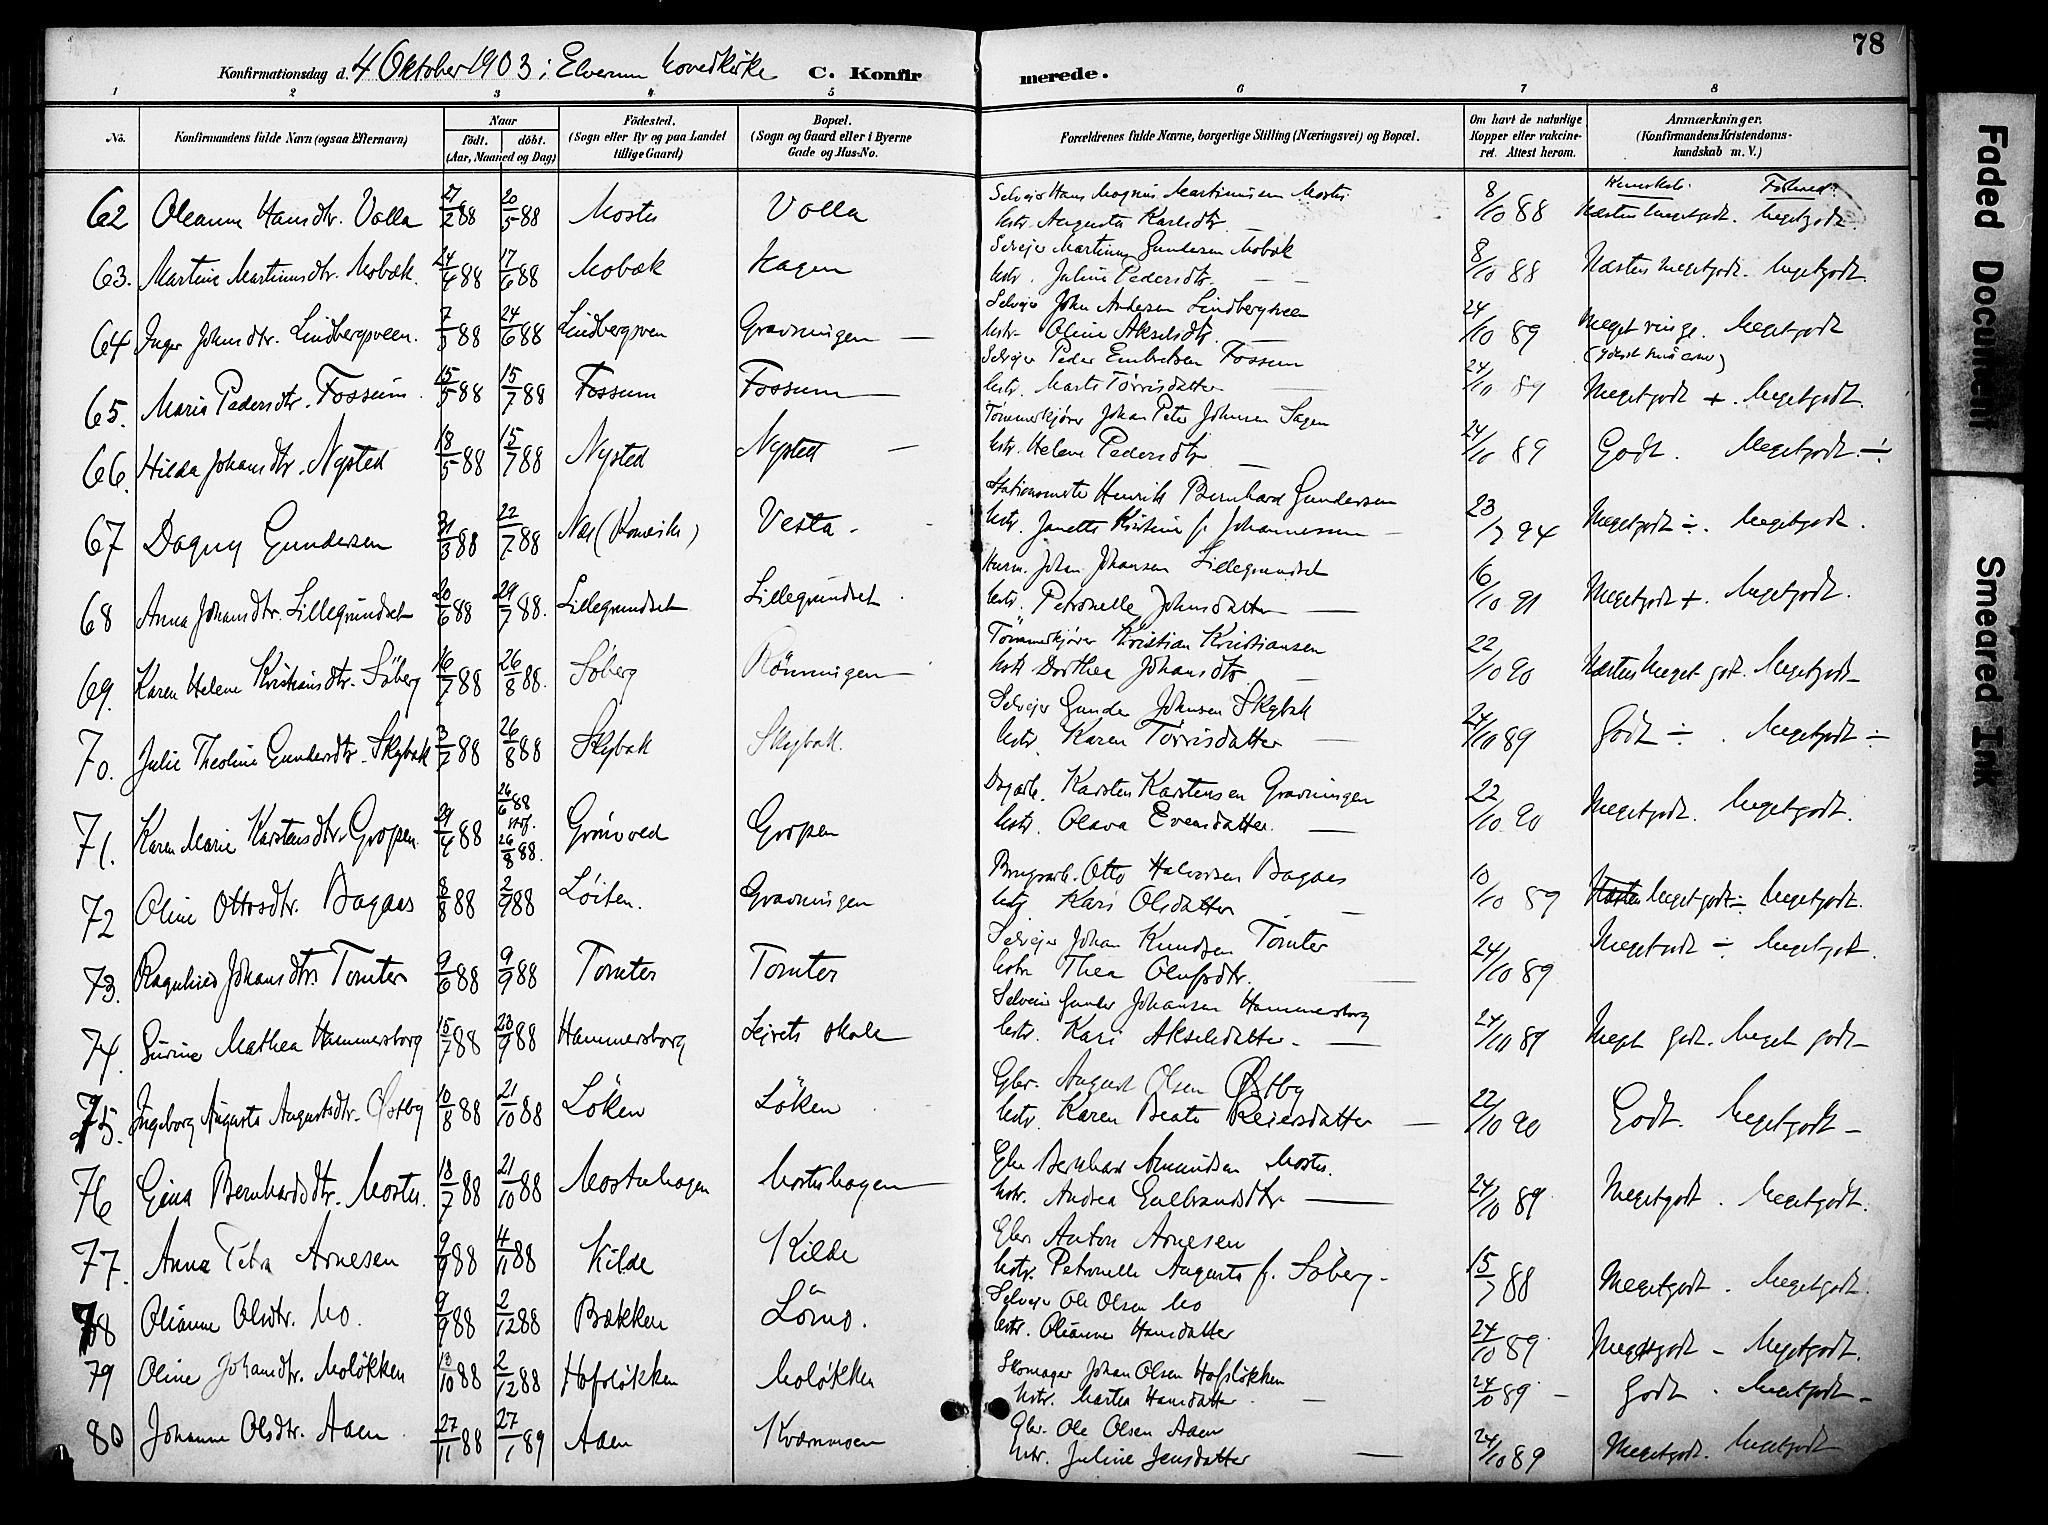 78
Konfirmationsdag d. 4 Oktober 1903 i Elverum hovedkirke C. Konfirmerede.
1 2 3 4 5 6 7 8
No. Konfirmandens fulde Navn (ogsaa Efternavn) Naar født. døbt. (Aar, Maaned og Dag) Fødested. (Sogn eller By og paa Landet tillige Gaard) Bopæl. (Sogn og Gaard eller i Byerne Gade og Hus-No. Forældrenes fulde Navne, borgerlige Stilling (Næringsvei) og Bopæl. Om havt de naturlige Kopper eller vakcineret. Attest herom. Anmærkninger. (Konfirmandens Kristendomskundskab m. V.)
62 Oleanne Hansdtr. Volla 27/2 88 20/5 88 Moster Volla Selveier Hans Magnus Martinusen Hustr. Augusta Karlsdtr. 8/10 88 Næsten Megetgodt. Megetgodt.
63. Martine Martinusdtr. Mobæk. 24/4 88 17/6 88 Mobæk Hagen Selveier Martinus Gundersen Mobæk Hustr. Juline Pedersdtr. 8/10 88 Næsten Megetgodt. Megetgodt.
64 Inger Johnsdtr. Lindbergsveen. 7/5 88 24/6 88 Lindbergsveen Gravningen Selveier John Andersen Lindbergsveen Hustr. Oline Akselsdtr. 24/10 89 Meget ringe. Megetgodt
65. Marie Pedersdtr. Fossum 15/5 88 15/7 88 Fossum Fossum Selveier Peder Embretsen Fossum Hustr. Marte Tørrisdatter 24/10 89 Megetgodt +. Megetgodt.
66. Hilda Johansdtr. Nysted 18/5 88 15/7 88 Nysted Nysted Tømmerkjører Johan Peter Johnsen Sagen Hustr. Helene Pedersdtr. 24/10 89 Godt. Megetgodt ÷
67 Dagny Gundersen 31/3 88 22/7 88 Næs (Romerike) Vesta. Stationsmester Henrik Bernhard Gundersen Hustr. Janette Kristine f. Johannessen 23/7 94 Megetgodt ÷. Megetgodt.
68 Anna Johansdtr. Lillegrundset 20/6 88 29/7 88. Lillegrundset Lillegrundset Husm. Johan Johansen Lillegrundset Hustr. Petronelle Johnsdatter 16/10 91 Megetgodt +. Megetgodt.
69. Karen Helene Kristiansdtr. Søberg 16/7 88 26/8 88. Søberg Rönningen Tømmerkjører Kristian Kristiansen Hustr. Dorthea Johansdtr. 22/10 90 Næsten Meget godt. Megetgodt
70. Julie Theoline Gundersdtr. Skybak 3/7 88 26/8 88 Skybak Skybak. Selveier Gunder Johnsen Skybak Hustr. Karen Tørrisdatter 24/10 89 Godt ÷. Megetgodt ÷
71. Karen Marie Karstensdtr. Gropen. 29/4 88 26/6 88 26/8 88. Grönvold Gropen Dagarb. Karsten Karstensen Gravningen Hustr. Olava Evensdatter. 22/10 90 Megetgodt. Megetgodt.
72 Oline Ottosdtr. Bagaas 8/8 88 2/9 88 Löiten. Gravningen Brugsarb. Otto Halvorsen Bagaas Hustr. Kari Olsdatter 10/10 89 Megetgodt ÷ Megetgodt.
73. Ragnhild Johansdtr. Tomter 9/6 88 9/9 88 Tomter Tomter Selveier Johan Knudsen Tomter Hustru Thea Olufsdtr. 24/10 89 Megetgodt ÷ Megetgodt.
74. Gurine Mathea Hammersborg 15/7 88 23/9 88 Hammersborg Leirets skole Selveier Gunder Johansen Hammersborg Hustr. Kari Akselsdatter 24/10 89 Meget godt. Meget godt
75. Ingeborg Augusta Augustsdtr. Østby 10/8 88 21/10 88 Löken Löken Gbr. August Olsen Østby Hustr. Karen Beate Reiersdatter 22/10 90 Godt. Megetgodt
76 Gina Bernhardsdtr. Moster. 13/7 88 21/10 88 Mosterhagen Mosterhagen Gbr. Bernhard Amundsen Moster. Hustr. Andrea Engebrandsdtr. 24/10 89 Megetgodt. Megetgodt.
77. Anna Petra Arnesen 9/9 88 4/11 88 Kilde Kilde Gbr. Anton Arnesen Hustr. Petronelle Augusta f. Søberg 15/7 88 Megetgodt. Megetgodt.
78 Olianne Olsdtr. Mo. 9/9 88 2/12 88 Bækken Lömo. Selveier Ole Olsen Mo Hustr. Olianne Hansdatter 24/10 89 Megetgodt Megetgodt.
79 Oline Johansdtr. Moløkken 13/10 88 2/12 88 Hofsløkken Moløkken Skomager Johan Olsen Hofsløkken Hustr. Marthea Hansdatter. 24/10 89 Godt. Megetgodt
80 Johanne Olsdtr. Aaen 27/11 88 27/1 89 Aaen Kværnmoen Gbr. Ole Olsen Aaen Hustr. Juline Jensdatter 24/10 89 Megetgodt. Megetgodt
Faded Document
Smeared Ink